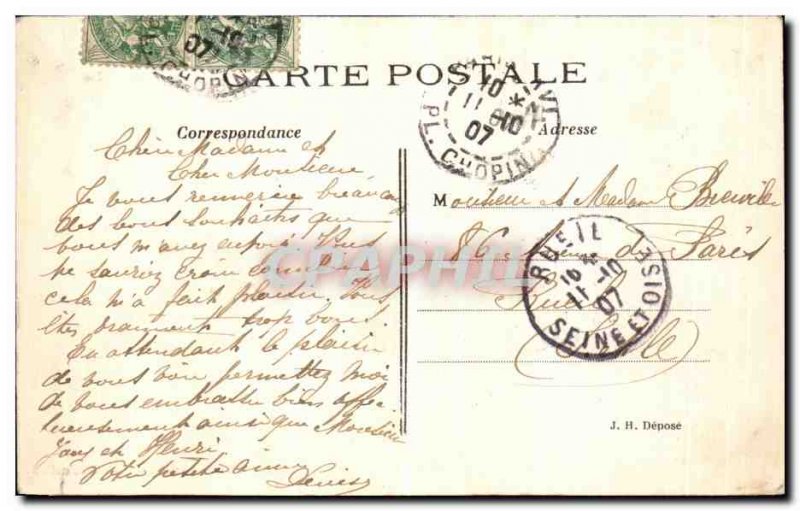 CARTE POSTALE
Correspondance
Adresse
Chère Madame et
Cher Monsieur,
Je vous remercie beaucoup
des bons souhaits que
vous m'avez envoyé. Vous
ne sauriez croire combien
cela m'a fait plaisir. Vous
êtes vraiment trop bons.
En attendant le plaisir
de vous voir permettez moi
de vous embrasser bien affec
tueusement ainsi que Monsieur
et Henri
Votre petite amie
Denise
Monsieur et Madame
de Paris
Rueil
J. H. Déposé
PL. CHOPIN
11 -10
07
PL. CHOPIN
11 -10
07
RUEIL
11 -10
07
SEINE ET OISE
CPAPHIL